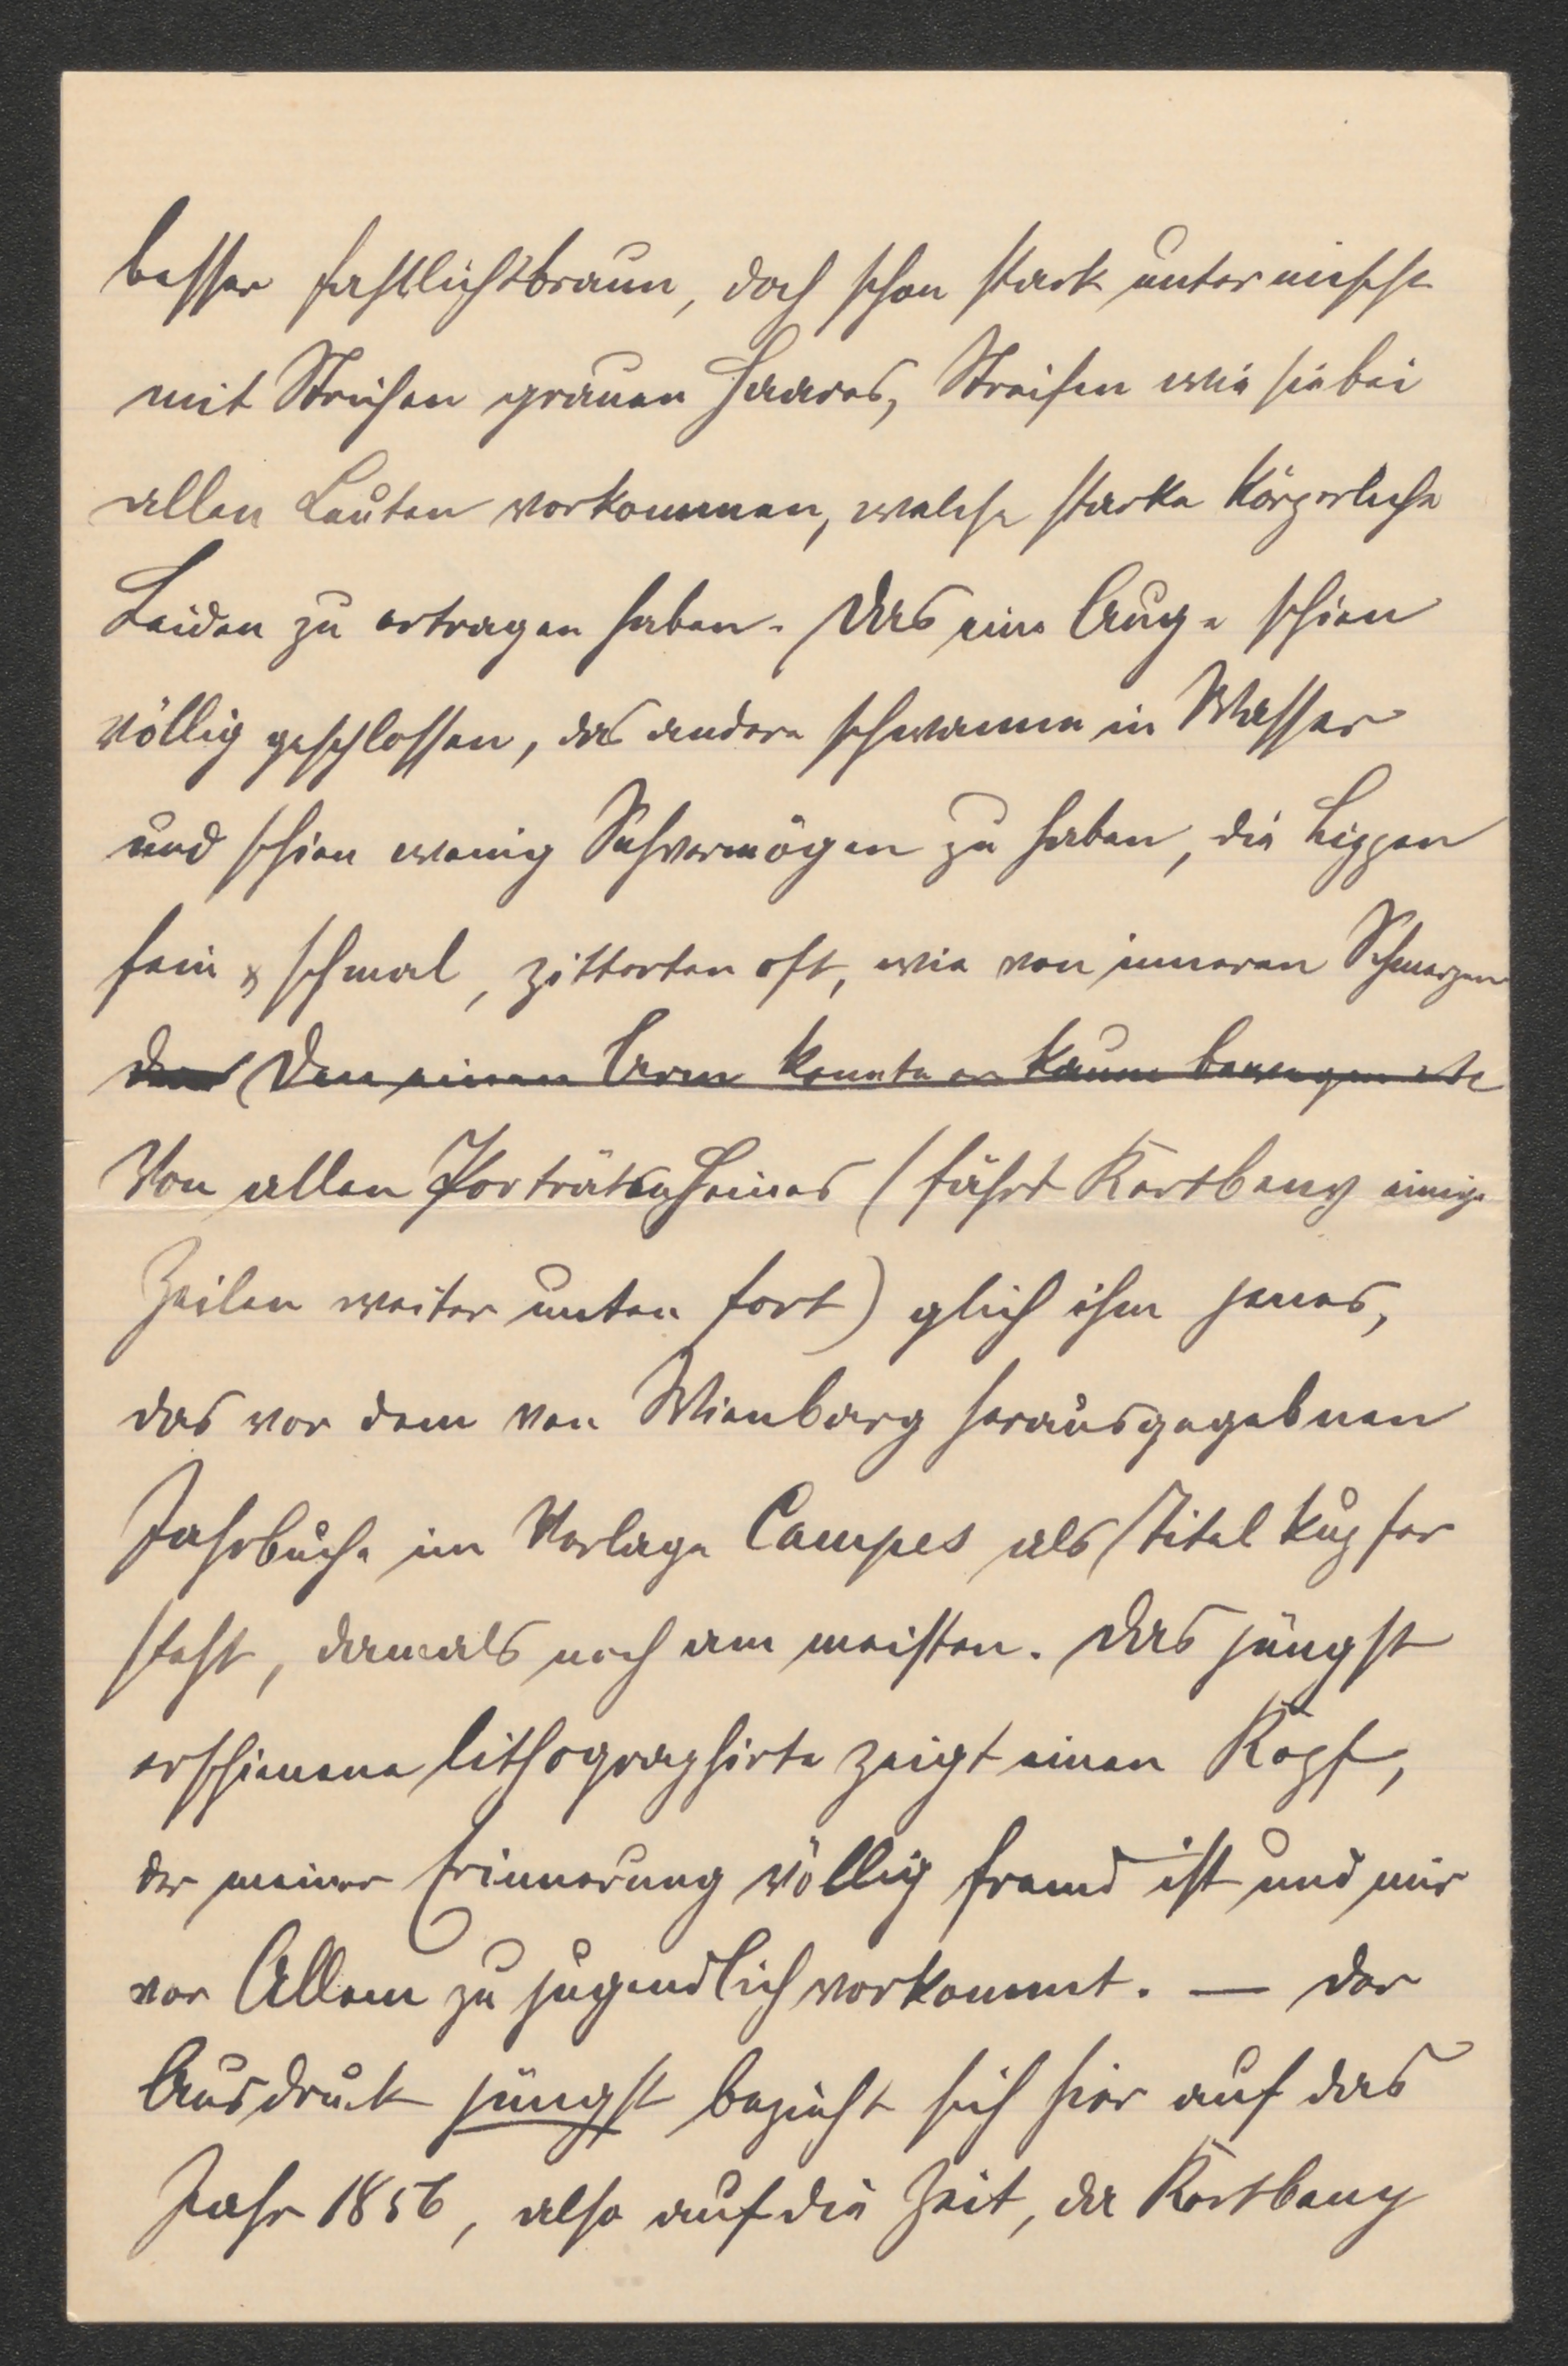 besser hechtlichtbraun, doch schon stark untermischt
mit Streifen grauen Haares, Streifen wie sie bei
allen Leuten vorkommen, welche starke körperliche
Leiden zu ertragen haben. Das eine Auge schien
völlig geschlossen, das andere schwamm in Wasser
und schien wenig Sehvermögen zu haben, die Lippen
fein & schmal, zitterten oft, wie von inneren Schmerzen
(Den einen Arm konnte er kaum bewegen etc
Von allen Porträten Heines (fährt Kertbeny einige
Zeilen weiter unten fort) glich ihm jenes,
das vor dem von Wienbarg herausgegebnen
Jahrbuche im Verlage Campes als Titelkupfer
steht, damals noch am meisten. Das jüngst
erschienene lithographirte zeigt einen Kopf,
der meiner Erinnerung völlig fremd ist und mir
vor Allem zu jugendlich vorkommt. — Der
Ausdruck jüngst bezieht sich hier auf das
Jahr 1856, also auf die Zeit, da Kertbeny